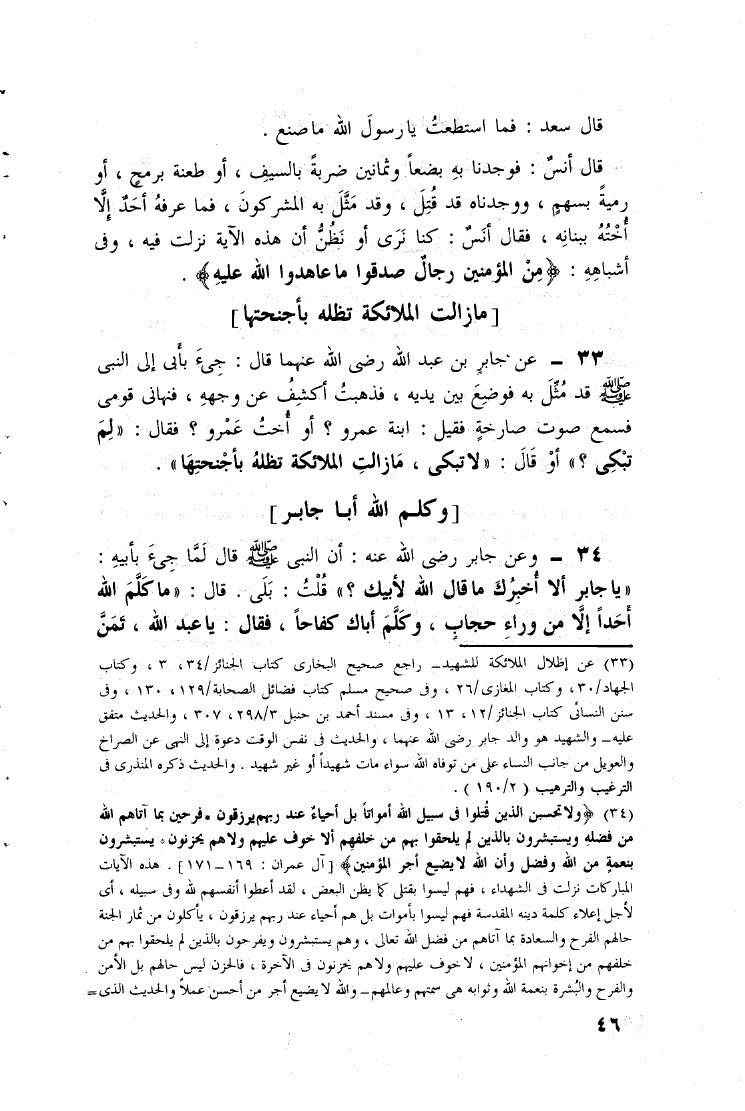 قال سعد : فما استطعتُ يا رسولَ الله ما صنع .
قال أنسٌ : فوجدنا بهِ بضعاً وثمانين ضربةً بالسيفِ ، أو طعنة برمحٍ ، أو
رميةً بسهمٍ ، ووجدناه قد قُتِلَ ، وقد مَثَّلَ به المشركونَ ، فما عرفهُ أحَدٌ إلَّا
أُخْتُهُ ببنانِه ، فقال أنَسٌ : كنا نَرَى أو نَظُنُّ أن هذه الآية نزلت فيه ، وفى
أشباهِهِ : ﴿مِنْ المؤمنين رجالٌ صدقوا ما عاهدوا الله عليهِ﴾ .
[ مازالت الملائكة تظله بأجنحتها ]
٣٣ ـ عن جابرِ بن عبد الله رضى الله عنهما قال : جِىءَ بأَبى إلى النبى
ﷺ قد مُثِّلَ به فوضِعَ بين يديه ، فذهبتُ أكشِفُ عن وجههِ ، فنهانى قومى
فسمع صوت صارخةٍ فقيل : ابنة عمرو ؟ أو أُختُ عَمْرو ؟ فقال : «لِمَ
تبْكِى ؟» أوْ قَالَ : «لاتبكى ، مَازالتِ الملائكة تظلهُ بأجْنحتِهَا» .
[ وكلـم الله أبـا جابـر ]
٣٤ ـ وعن جابر رضى الله عنه : أن النبى ﷺ قال لَمَّا جِىءَ بأبيهِ :
«يا جابر ألا أُخبِرُكَ ما قال الله لأبيك ؟» قُلْتُ : بَلَى . قال : «ما كَلَّمَ الله
أحَداً إلَّا من وراءِ حجابٍ ، وكَلَّمَ أباك كفاحاً ، فقال : يا عبد الله ، تَمَنَّ
(٣٣) عن إظلال الملائكة للشهيد ـ راجع صحيح البخارى كتاب الجنائز/٣٤، ٣ ، وكتاب
الجهاد/٣٠، وكتاب المغازى/٢٦ ، وفى صحيح مسلم كتاب فضائل الصحابة/١٢٩، ١٣٠ ، وفى
سنن النسائى كتاب الجنائز/١٢، ١٣ ، وفى مسند أحمد بن حنبل ٢٩٨/٣، ٣٠٧ ، والحديث متفق
عليه ـ والشهيد هو والد جابر رضى الله عنهما ، والحديث فى نفس الوقت دعوة إلى النهى عن الصراخ
والعويل من جانب النساء على من توفاه الله سواء مات شهيداً أو غير شهيد . والحديث ذكره المنذرى فى
الترغيب والترهيب ( ١٩٠/٢ ) .
(٣٤) ﴿ولا تحسبن الذين قُتلوا فى سبيل الله أمواتاً بل أحياءٌ عند ربهم يرزقون * فرحين بما آتاهم الله
من فضله ويستبشرون بالذين لم يلحقوا بهم من خلفهم ألا خوف عليهم ولا هم يحزنون * يستبشرون
بنعمةٍ من الله وفضل وأن الله لايضيع أجر المؤمنين﴾ [ آل عمران : ١٦٩ ـ ١٧١ ] . هذه الآيات
المباركات نزلت فى الشهداء ، فهم ليسوا بقتلى كما يظن البعض ، لقد أعطوا أنفسهم لله وفى سبيله ، أى
لأجل إعلاء كلمة دينه المقدسة فهم ليسوا بأموات بل هم أحياء عند ربهم يرزقون ، يأكلون من ثمار الجنة
حالهم الفرح والسعادة بما آتاهم من فضل الله تعالى ، وهم يستبشرون ويفرحون بالذين لم يلحقوا بهم من
خلفهم من إخوانهم المؤمنين ، لا خوف عليهم ولا هم يحزنون فى الآخرة ، فالحزن ليس حالهم بل الأمن
والفرح والبُشرة بنعمة الله وثوابه هى سمتهم وعالمهم ـ والله لا يضيع أجر من أحسن عملاً والحديث الذى =
٤٦